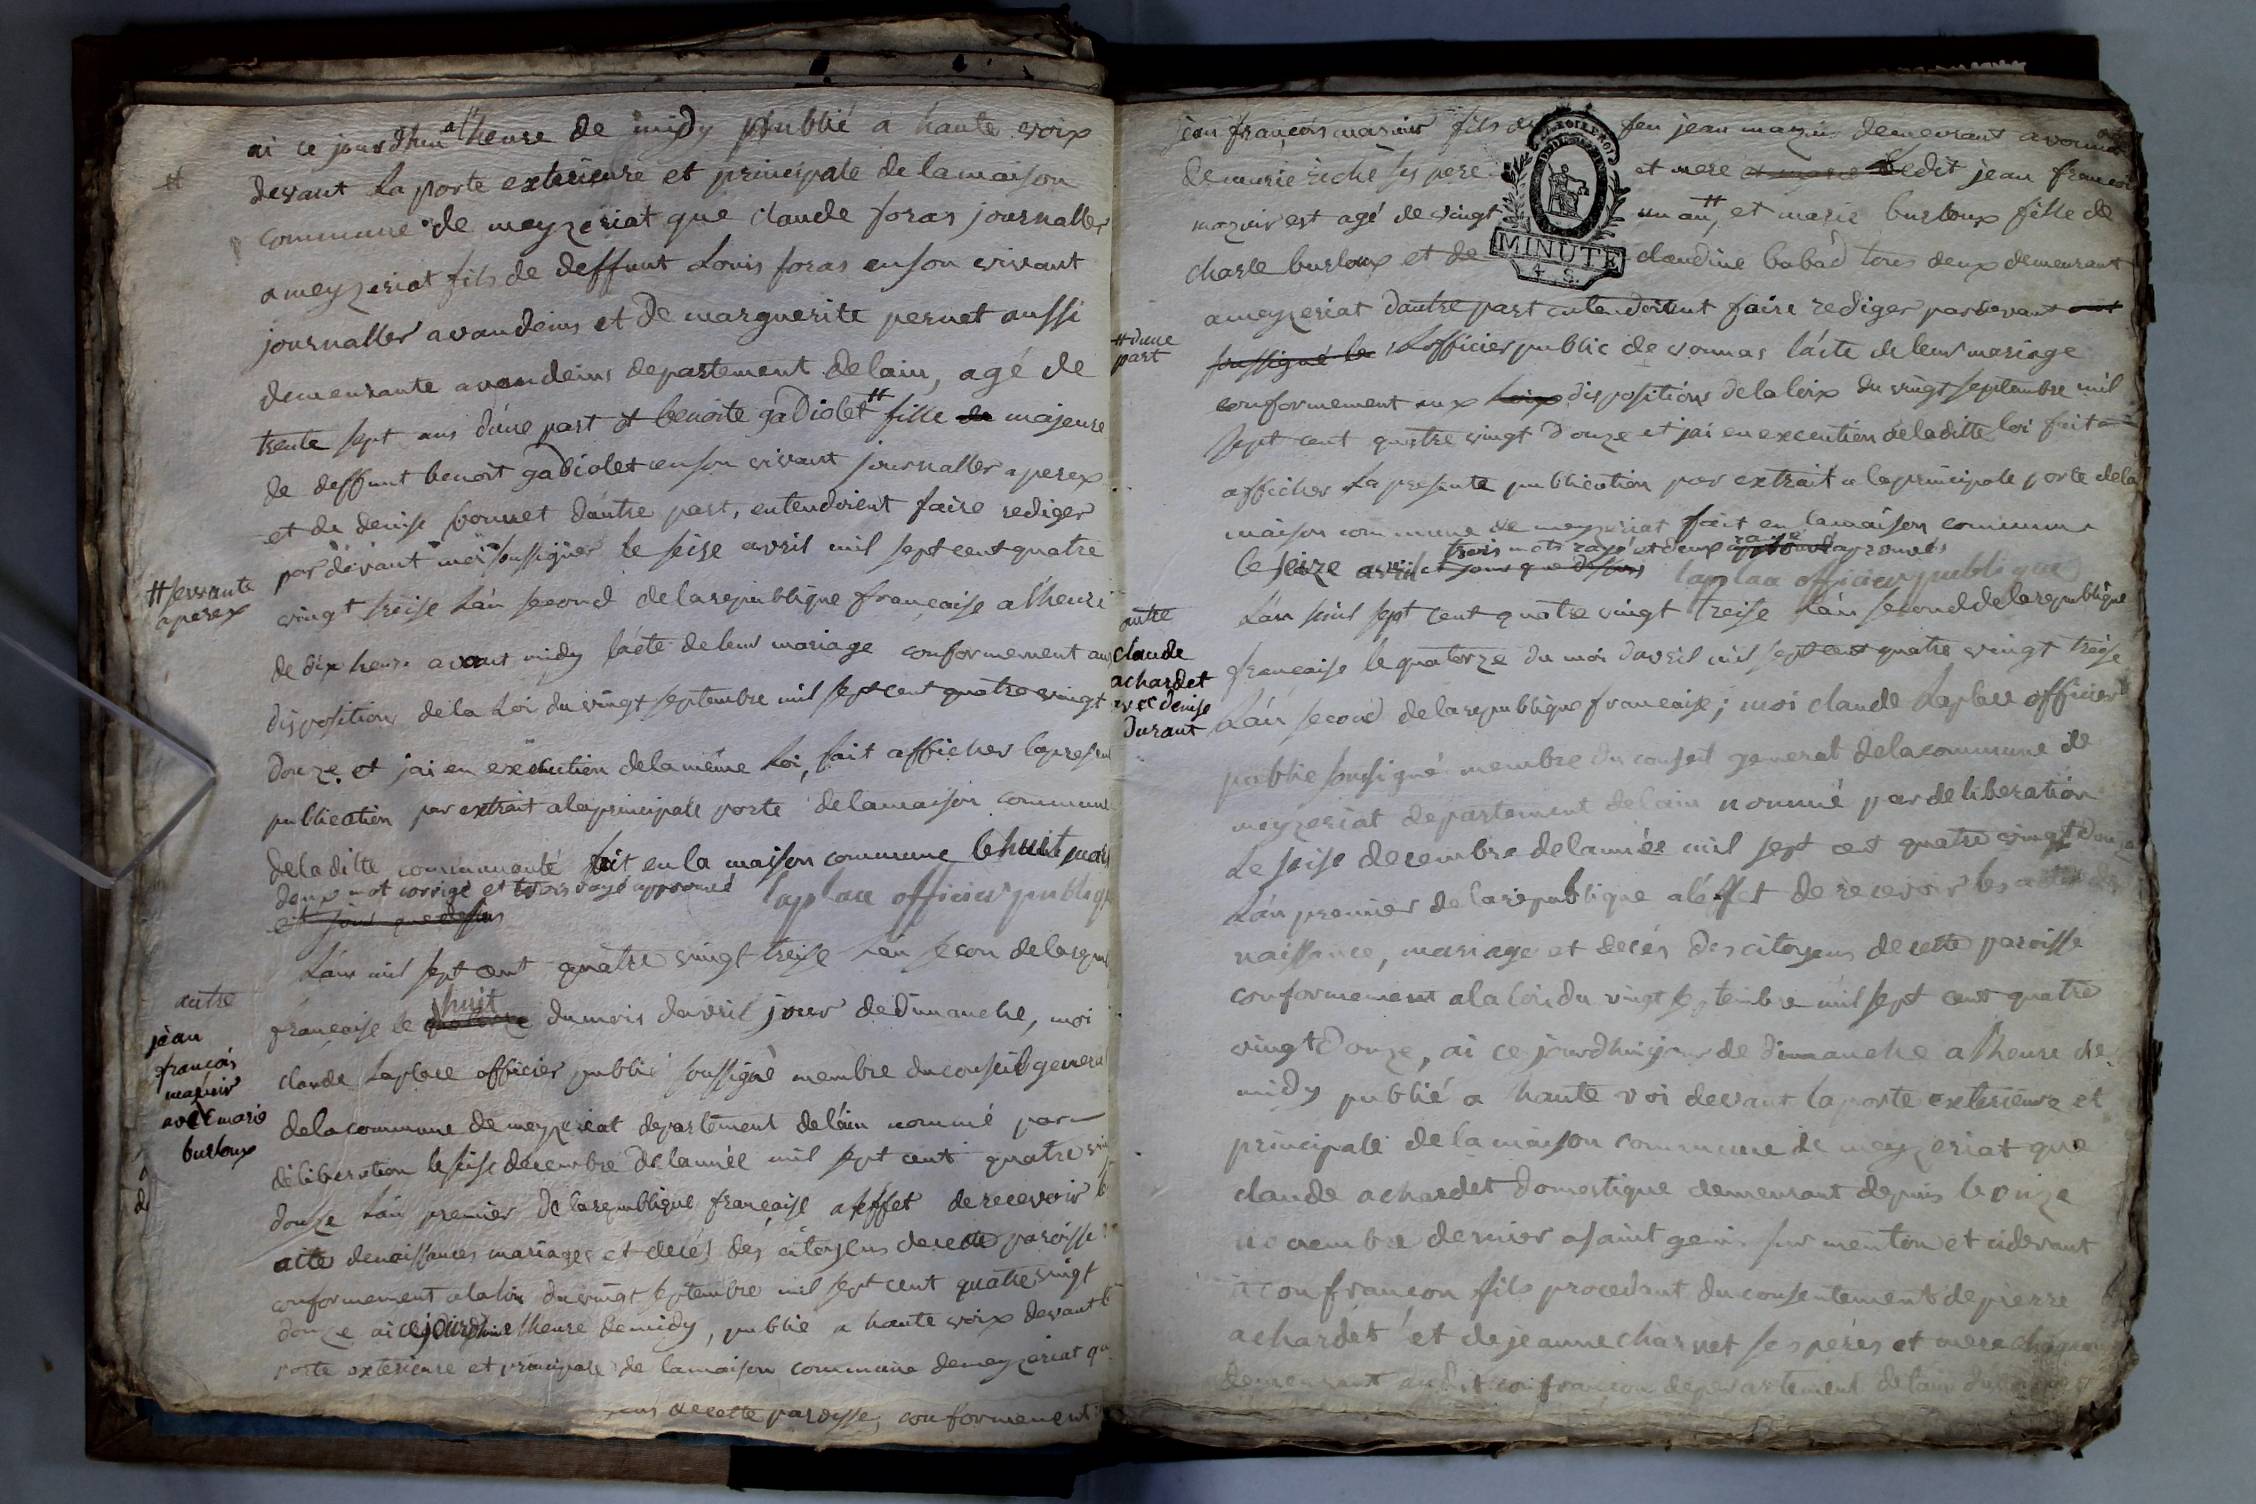 ai ce jourdhui a lheure de midy publié a haute voix
devant La porte exterieure et principale de lamaison
commune de meyzeriat que claude foras journaller
a meyzeriat fils de deffunt Louis foras enson vivant
journaller avandeins et de marguerite pernet aussi
demeurante avandeins departement delain, agé de
trente sept ans dúne part et benoite gadiolet # fille majeure
de deffunt benoit gadiolet enson vivant journaller a perex
et de denise bonnet dautre part, entendoient faire rediger
par devant moi soussigner le seise avril mil sept cent quatre
vingt treise Lán second delarepublique française a lheure
# servante
a perex
de dix heure avant midy lácte deleur mariage conformement aux
disposition dela Loi du vingt septembre mil sept cent quatre vingt
douze et jai en execution delamême Loi, fait afficher lapresent
publication par extrait alaprincipale porte delamaison commune
deladitte communauté fait en la maison commune le huit
deux mot corrigé et trois rayé approuvé laplace officier publiq
et jour que dessus
autre
jean
françois
maznir
avec marie
burloux
Lán mil sept cent quatre vingt treise Lán secon dela
française le huit dumois davril jour dedimanche, moi
claude Laplace officier public soussigné membre duconseil general
delacommune demeyzeriat departement deláin nommé par
déliberation leseise decembre delannée mil sept cent quatre
douze Lán premier delarepublique française aleffet de recevoir
acte denaissances mariages et decés des citoyens decette paroisse
conformement alaloi duvingt septembre mil sept cent quatre vingt
douze ai cejourdhui lheure demidy, publié a haute voix devant
porte exterieure et principale de lamaison commune demeyzeriat qu
decette paroisse, conformement
jean françois maznir fils de feu jean maznir demeurant avonnas
demarie riche ses pere et mere Ledit jean françois
maznir est agé de vingt un an #, et marie burloux fille de
charle burloux et de claudine babad tous deux demeurant
MINUTE
4. S.
# dune
part
a meyzeriat dautre part entendoient faire rediger pardevant
soussigné le Lofficier public de vonnas lácte de leur mariage
conformement aux loix disposition dela loix du vingt septembre mil
sept cent quatre vingt douze et jai en execution deladitte loi fait
afficher La presente publication par extrait a la principale porte dela
maison commune de meyzeriat fait en lamaison commune
trois mots rayé et deux approuvés
le seize avril et jour que dessus laplace officier publique
autre
claude
achardet
avec denise
Durant
Lán mil sept cent quatre vingt treise Lán second delarepublique
française le quatorze du moi davril mil sept cent quatre vingt treise
Lán second delarepublique française; moi claude Laplace officier
public soussigné membre du conseil general delacommune de
meyzeriat departement delain nommé par deliberation
Le seise decembre delannée mil sept cent quatre vingt douze
Lán premier delarepublique aléffet de recevoir les actes de
naissance, mariage et decés des citoyens decette paroisse
conformement alaloi du vingt septembre mil sept cent quatre
vingt douze, ai ce jourdhui jour de dimanche a lheure de
midy publié a haute voi devant laporte exterieure et
principale delamaison commune de meyzeriat que
claude achardet domestique demeurant depuis le onze
novembre dernier asaint genis sur menton et cidevant
a confrançon fils procedant du consentement de pierre
achardet et dejeanne charnet ses péres et mere
demeurant audit confrançon departement delain